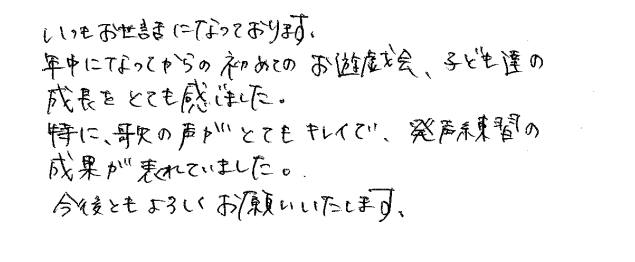 いつもお世話になっております。
年中になってからの初めてのお遊戯会、子ども達の
成長をとても感じました。
特に、歌の声がとてもキレイで、発声練習の
成果が表れていました。
今後ともよろしくお願いいたします。